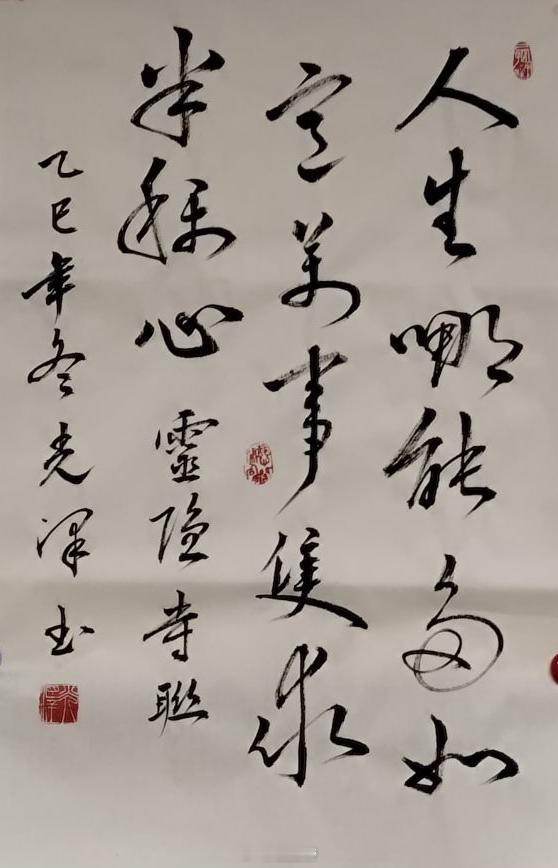 人生哪能多如
意萬事隻求
半稱心靈隐寺聯
乙巳年冬光澤书